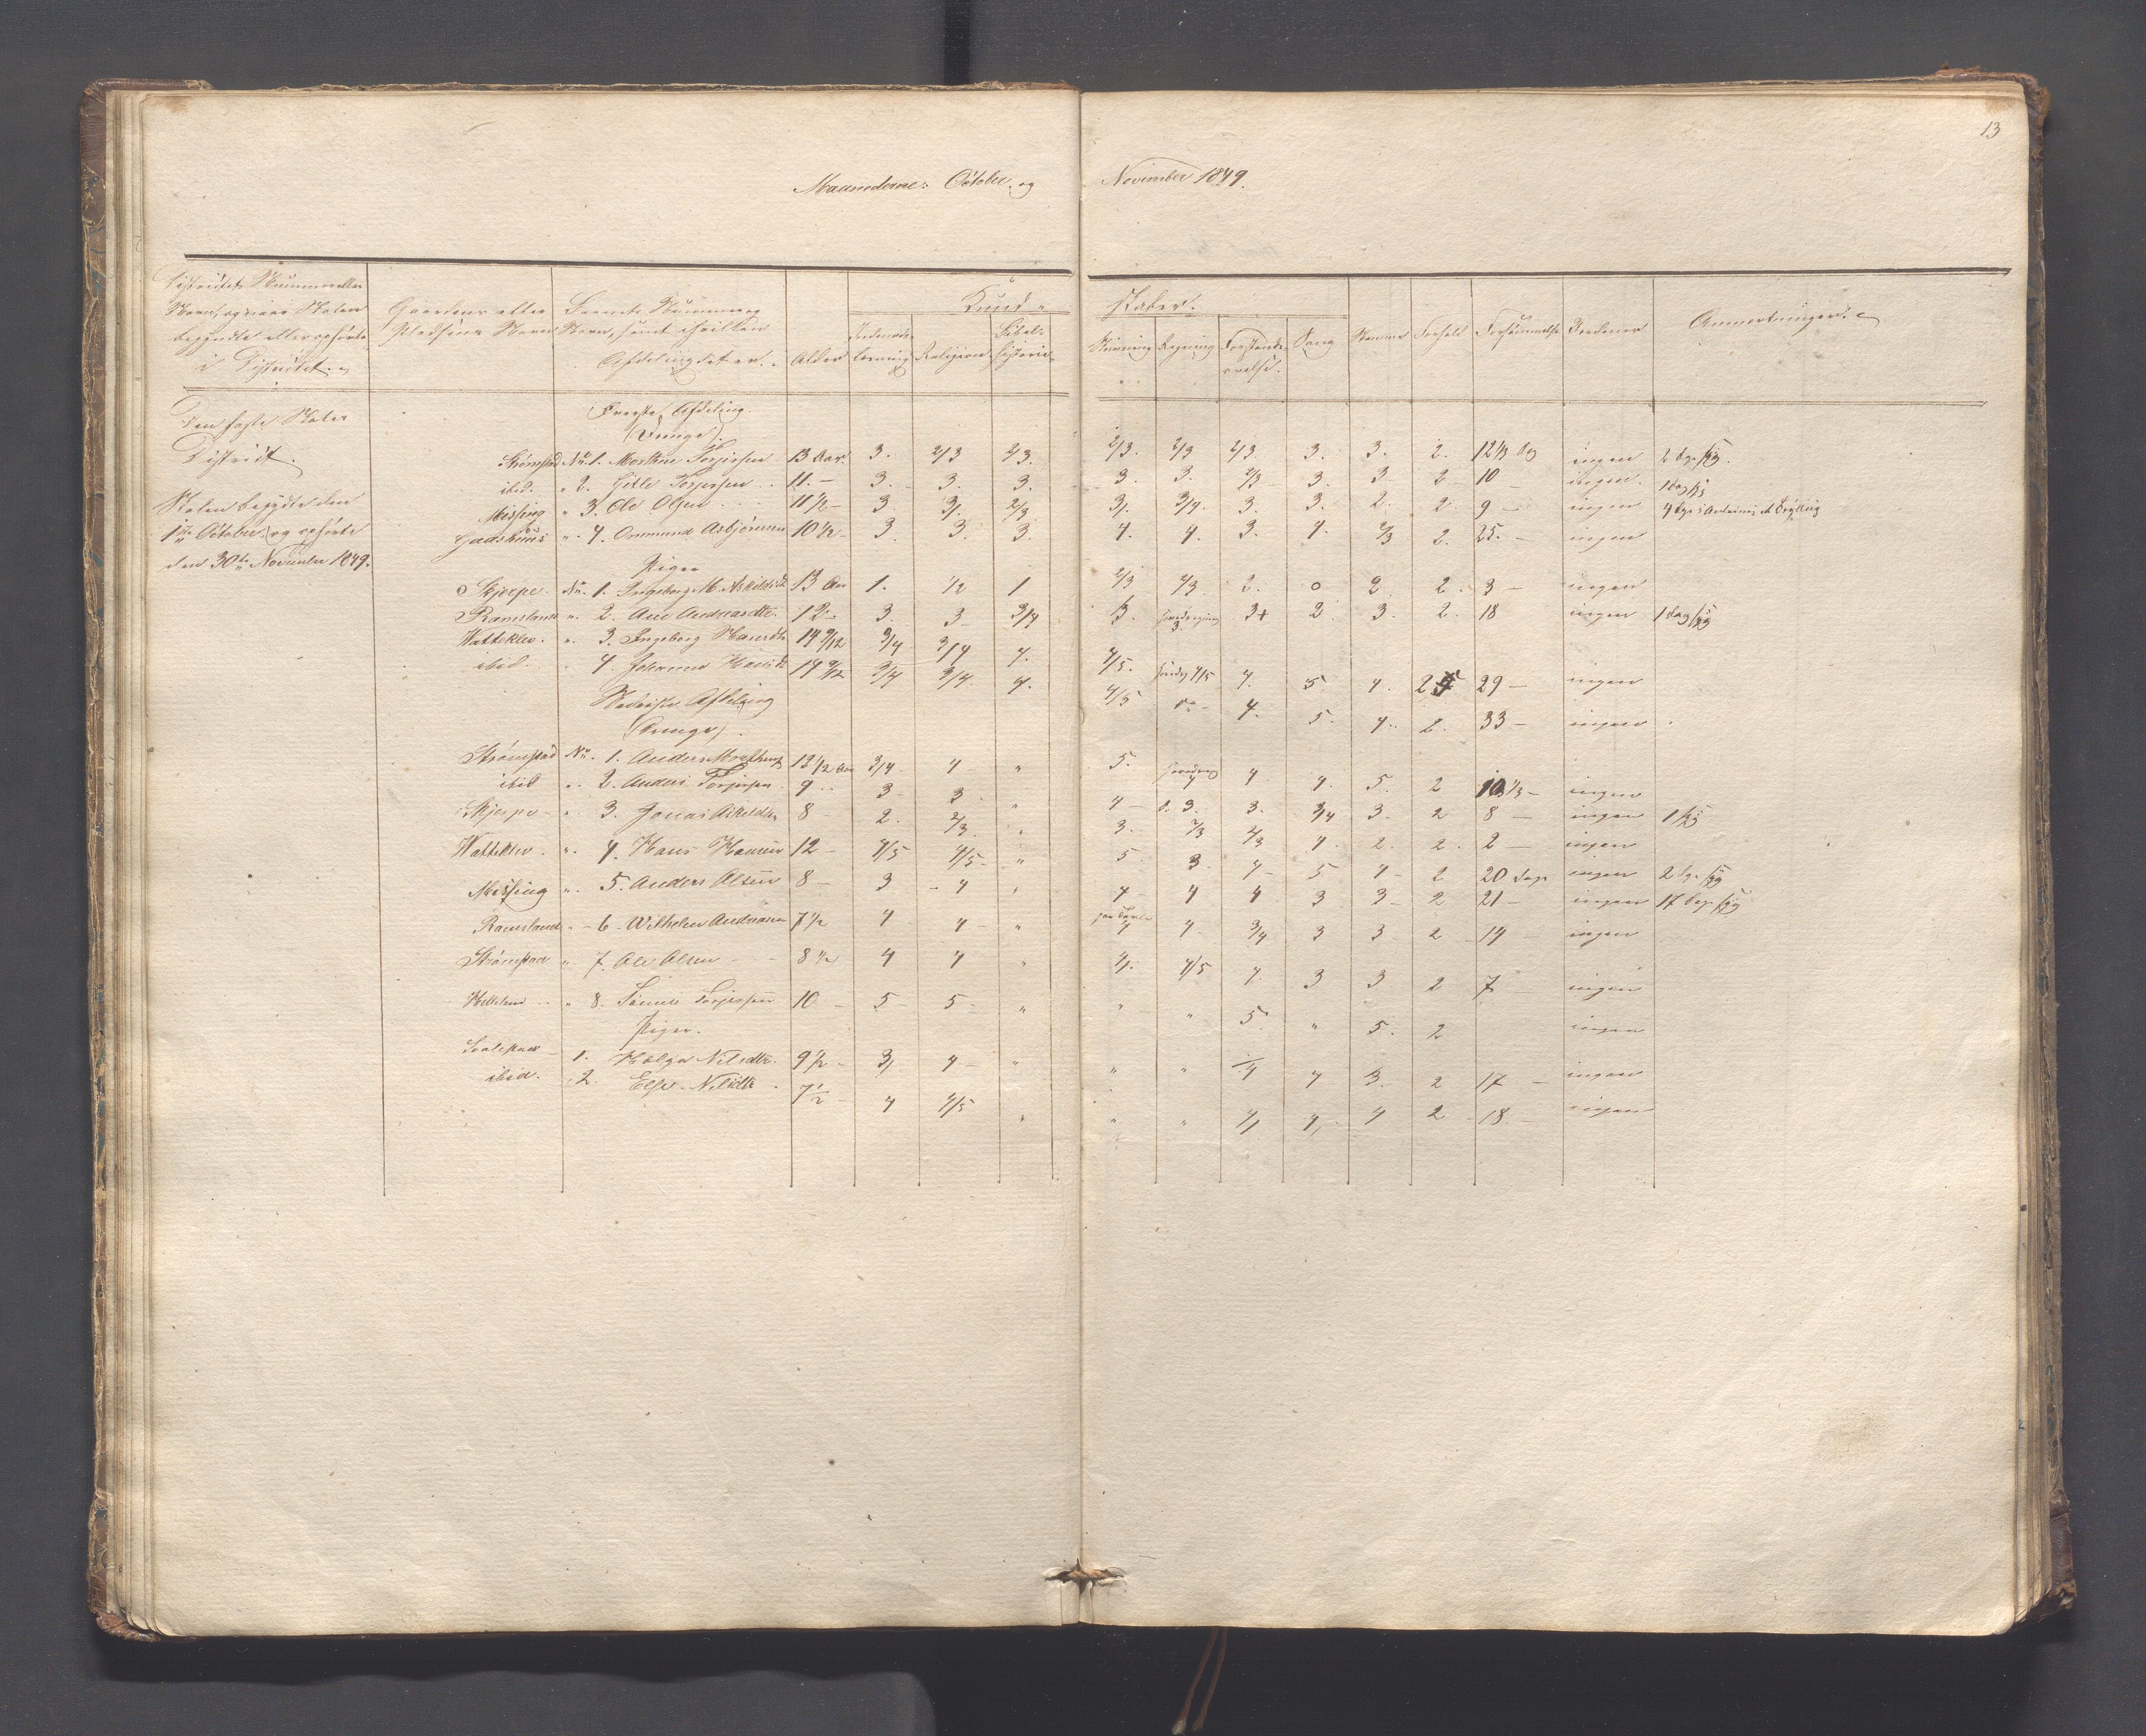 13
Maanederne: October og November 1849.
Districtets Nummer eller
Navn, og naar Skolen
begyndte eller ophørte
i Districtet.
Gaardens eller
Pladsens Navn
Barnets Nummer og
Navn, samt hvilken
Afdeling det er.
Alder
Kundskaber.
Indenads-
læsning
Religion
Bibel-
historie
Skrivning
Regning
Forstands-
øvelse.
Sang
Nemme
Forhold
Forsømmelse
Anmærkninger.
Den faste Skoles
District.
Skolen begyndte den
1ste October og ophørte
den 30te November 1849.
Øverste Afdeling
(Drenge).
Strømstad No 1. Morthen Torjersen 13 Aar. 3. 2/3 2/3. 2/3. 2/3 2/3 3. 3. 2. 12 1/2 Dag ingen 2 Dage syg.
ibid. " 2. Torjersen 11. - 3. 3. 3. 3. 3. 2/3 3. 3 2 10 ingen. 1 dag syg
Missing " 3. Ole Olsen 11 1/2 - 3. 3. 2/3 3. 3/4. 3. 3. 2. 2. 9 - ingen
Gadshuus " 4. Ommund Asbjørnsen 10 1/2 - 3. 3. 3. 4. 4. 3. 4. 2/3 2. 25. - ingen
Piger
Skjerpe. No. 1. Ingeborg M. Askildsdtr 13 Aar 1. 1/2 1 2/3 2/3. 2. 0 2. 2. 3 - ingen
Ramsland " 2. Ane Andreasdtr. 12 - 3. 3 3/4 3. 3 3+ 2 3. 2. 18 ingen 1 dag syg
Watteklev. " 3. Ingeborg Hansdtr 14 9/12 3/4 3/4 4. 4/5. 4/5 4. 5 4. 2 29 - ingen
ibid. 4. Johanne Hansdtr 14 9/12 3/4 3/4. 4. 4/5 do - 4. 5. 4. 2. 33 - ingen
Nederste Afdeling
(Drenge).
Strømstad No. 1. Anders Morthens 12 1/2 Aar 3/4 4 " 5. 4 4 4. 5. 2 ingen
ibid " 2. Anders Torjersen 9 3 3 " 4 - 3. 3. 3/4 3. 2 8 - ingen 1 syg
Skjerpe " 3. Jonas Askildsen 8 2. 2/3. " 3. 2/3 2/3 4. 2. 2. 2 - ingen
Watteklev. " 4. Hans Hansen 12 - 4/5 4/5 " 5. 3. 4 5 4 - 2 20 Dage ingen 2 Dage syg
Missing " 5. Anders Olsen 8 - 3 - 4 " 4 4 4 3 3 2 21 - ingen 17 Dage syg
Ramsland " 6 - Wilhelm Andreasen 7 1/2 4 4 " 4 4 3/4 3 3 2 14 ingen
Strømstad " 7. Ole Olsen 8 1/2 4 4 " 4. 4/5 4. 3 3 2 7 ingen
Helleland " 8. Torjersen 10 - 5 5 " " " 5. " 5. 2 ingen
Piger.
1. Helga Nilsdtr. 9 1/2 - 3/ 4 - " " " 4 4 3. 2 17 - ingen
ibid. 2. Else Nilsdtr 7 1/2 - 4 4/5 " " " 4/ 4, 4 2 18 - ingen